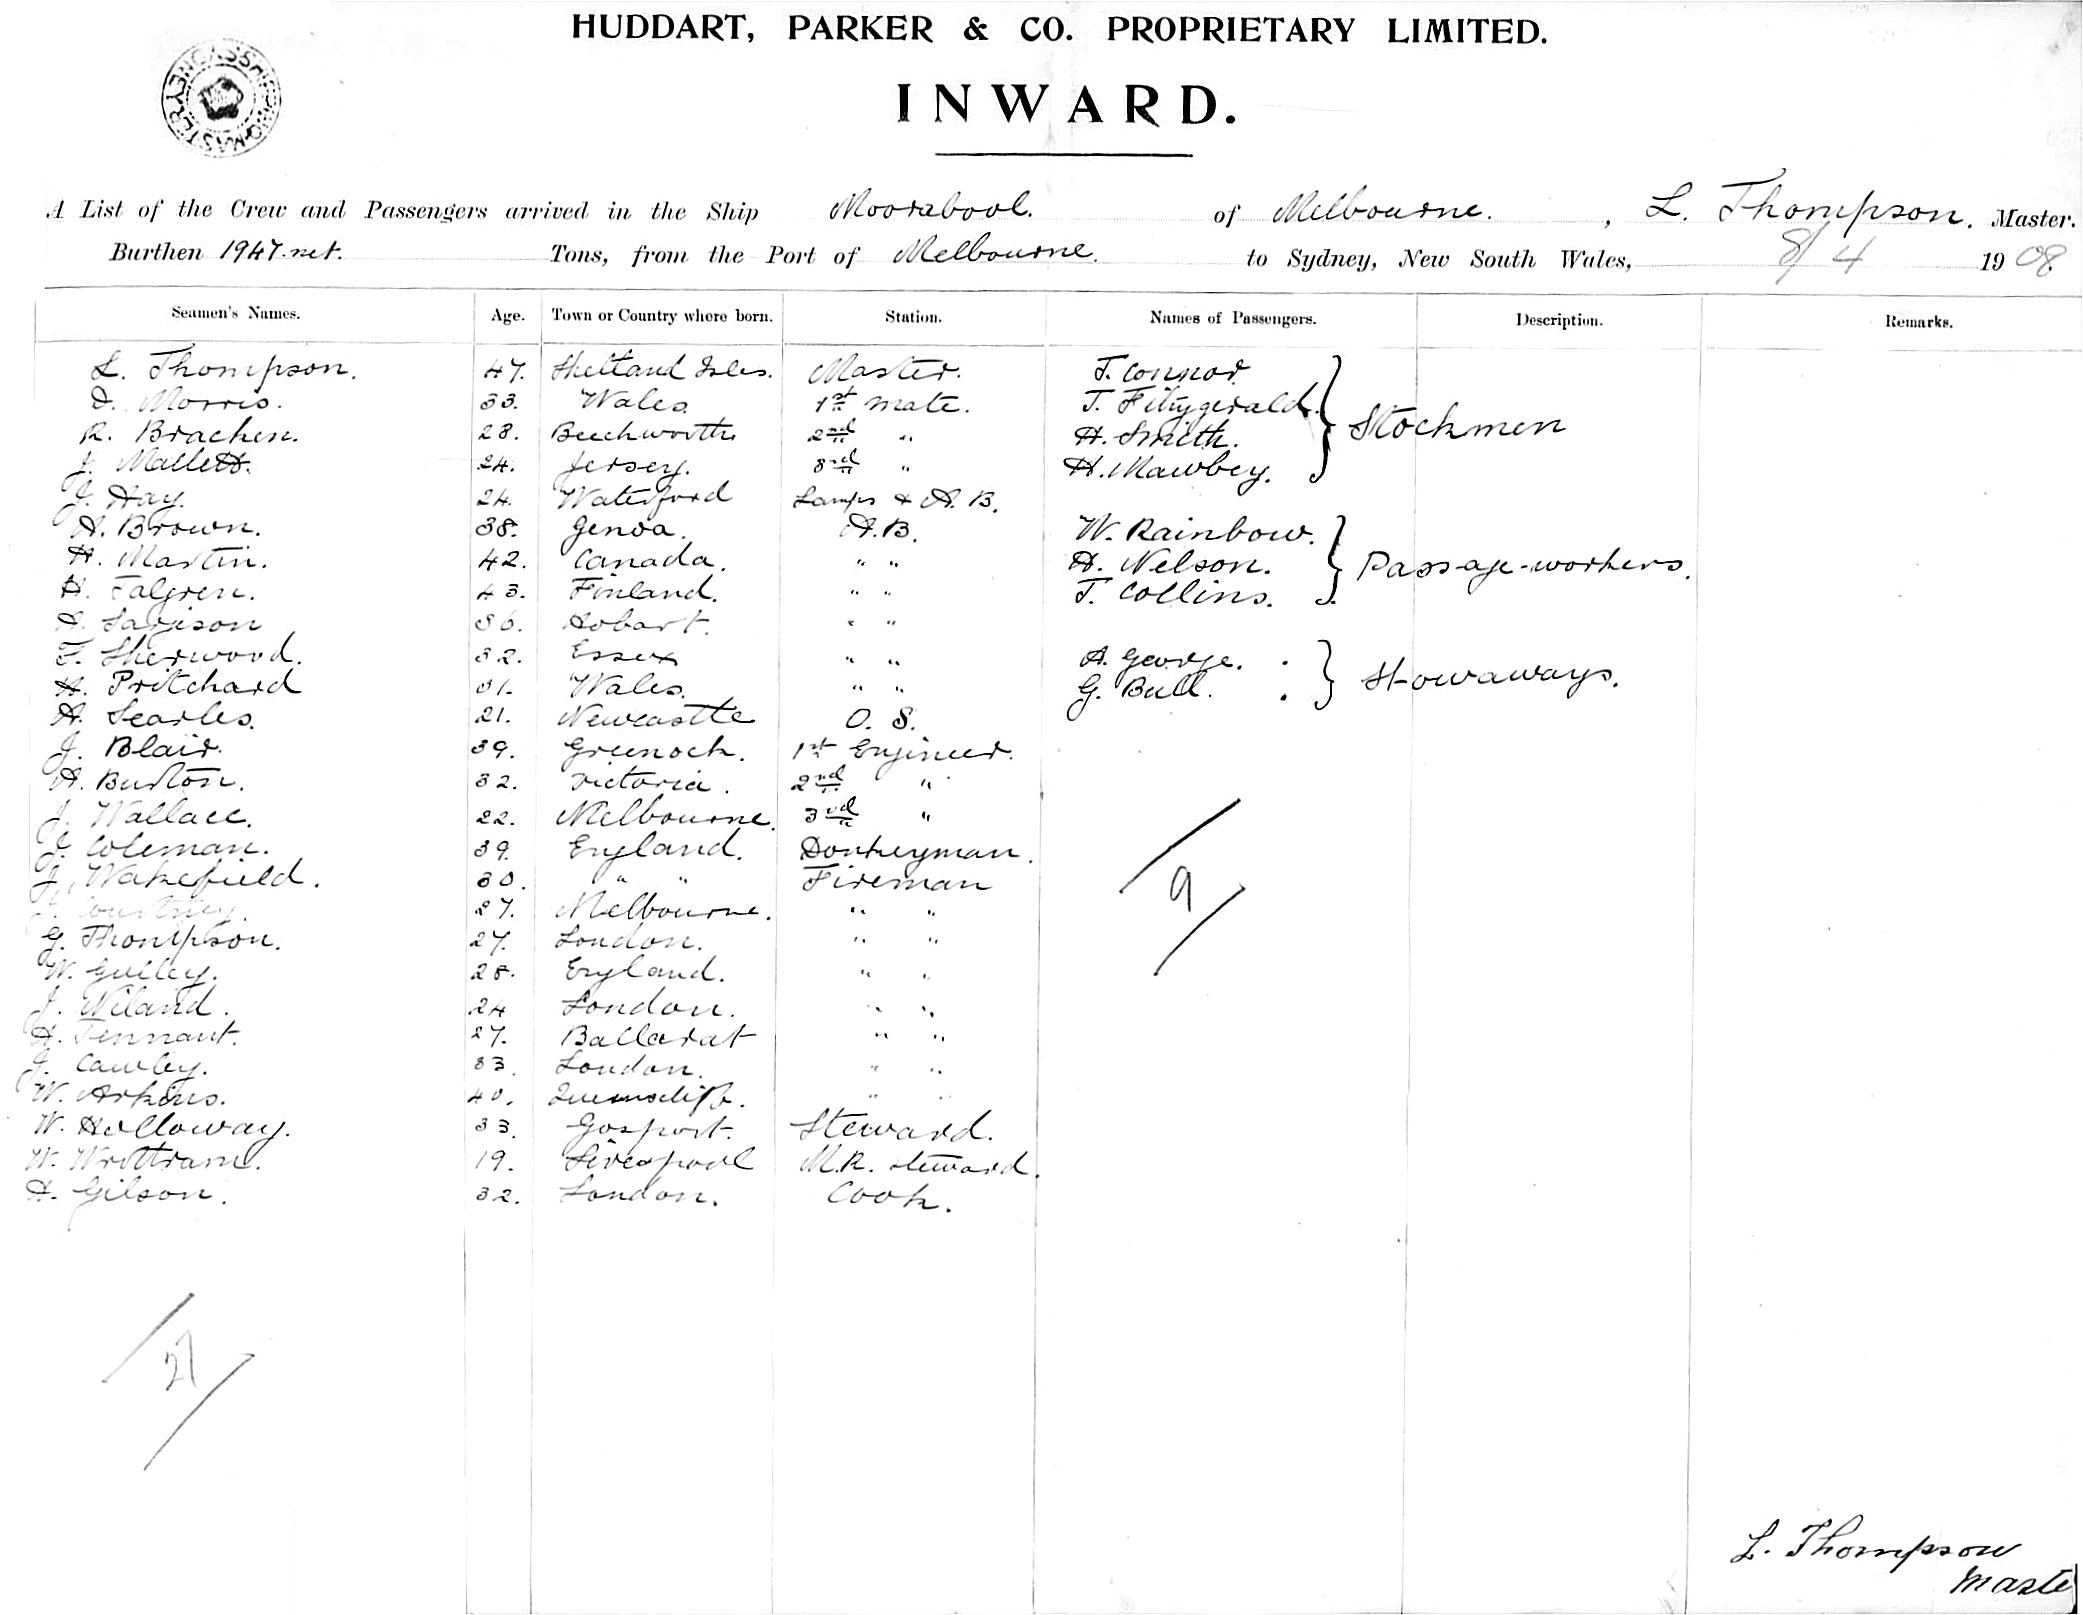 HUDDART, PARKER & CO. PROPRIETARY LIMITED.
INWARD.
SHIPPING MASTER SYDNEY
A List of the Crew and Passengers arrived in the Ship Moorabool. of Melbourne. , L. Thompson. Master.
Burthen 1947 net. Tons, from the Port of Melbourne. to Sydney, New South Wales, 8/4 1908
Seamen's Names. Age. Town or Country where born. Station. Names of Passengers. Description. Remarks.
L. Thompson. 47. Shetland Isles. Master. T. Connor
D. Morris. 33. Wales. 1st Mate. T. Fitzgerald. Stockmen
R. Bracken. 28. Beechworth 2nd " H. Smith.
J. Mallett. 24. Jersey. 3rd " H. Mawbey.
J. Hay. 24. Waterford Lamps & A. B.
A. Brown. 38. Genoa. A.B. W. Rainbow.
H. Martin. 42. Canada. " " H. Nelson. Passage-workers.
H. Falgren. 43. Finland. " " T. Collins.
A. 36. Hobart. " "
F. Sherwood. 32. Essex " " A. George.
H. Pritchard 31. Wales. " " G. Bull. Stowaways.
A. Searles. 21. Newcastle O. S.
J. Blair. 39. Greenock. 1st Engineer.
A. Burton. 32. Victoria. 2nd "
J. Wallace. 22. Melbourne. 3rd "
J. Coleman. 39. England. Donkeyman.
J. Wakefield. 30. " " Fireman
Courtney. 27. Melbourne. " "
G. Thompson. 27. London. " "
W. Gulley. 28. England. " "
J. Niland. 24 London. " "
A. Tennant. 27. Ballarat " "
J. Cawley. 33. London. " "
W. Arkins. 40. Queenscliff. " "
W. Holloway. 33. Gosport. Steward.
W. Wrottram. 19. Liverpool M.R. Steward.
H. Gilson. 32. London. Cook.
9
27
L. Thompson
Master